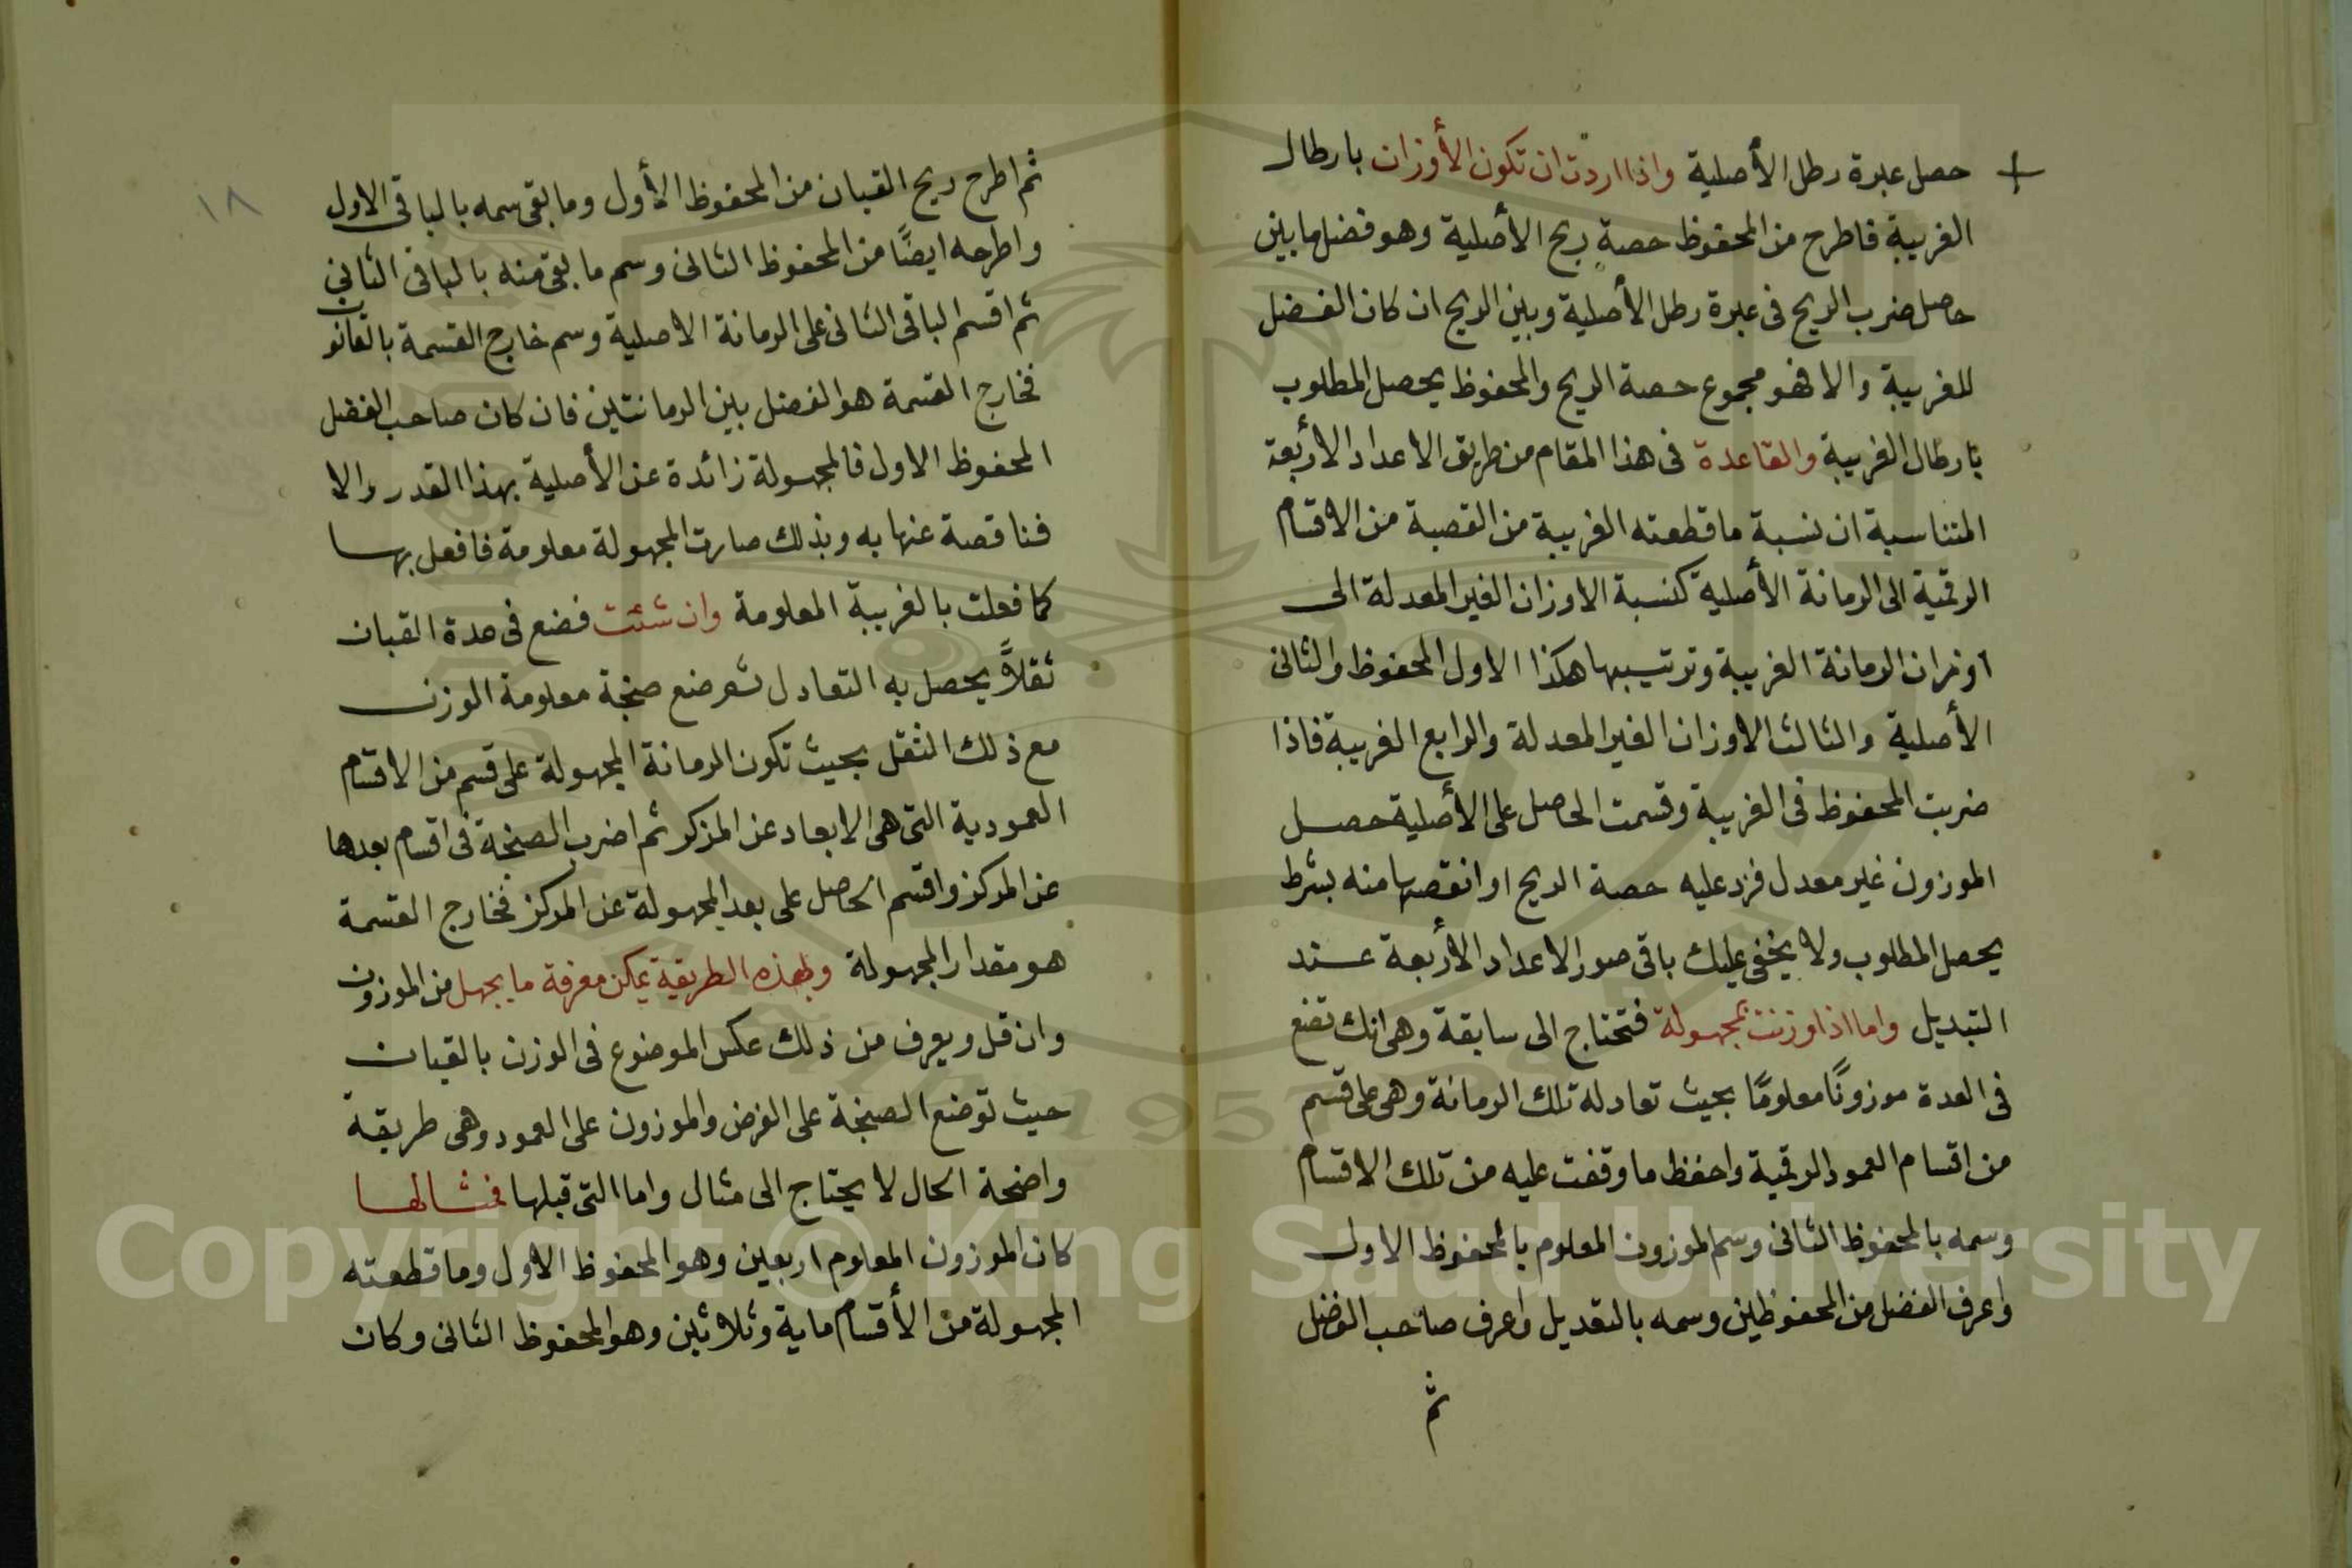 حصل عبرة رطل الأصلية واذا اردت ان تكون الأوزان بارطال
الغريبة فاطرح من المحفوظ حصة ريح الأصلية وهو فضل ما بين
حاصل ضرب الريح فى عبرة رطل الأصلية وبين الريح ان كان الفضل
للغريبة والا فهو مجموع حصة الريح والمحفوظ يحصل المطلوب
بارطال الغريبة والقاعدة فى هذا المقام من طريق الاعداد الأربعة
المتناسبة ان نسبة ما قطعته الغريبة من القصبة من الاقسام
الرقمية الى الرمانة الأصلية كنسبة الاوزان الغير المعدلة الى
اوزان الرمانة الغريبة وترتيبها هكذا الاول المحفوظ والثانى
الأصلية والثالث الاوزان الغير المعدلة والرابع الغريبة فاذا
ضربت المحفوظ فى الغريبة وقسمت الحاصل على الأصلية حصل
الموزون غير معدل فزد عليه حصة الريح او انقصها منه بشرط
يحصل المطلوب ولا يخفى عليك باقى صور الاعداد الأربعة عند
التبديل واما اذا وزنت بمجهولة فتحتاج الى سابقة وهى انك تضع
فى العدة موزونًا معلومًا بحيث تعادله تلك الرمانة وهى على قسم
من اقسام العمود الرقمية واحفظ ما وقفت عليه من تلك الاقسام
وسمه بالمحفوظ الثانى وسم الموزون المعلوم بالمحفوظ الاول
واعرف الفضل من المحفوظين وسمه بالتعديل واعرف صاحب الفضل
ثم
١٨
ثم اطرح ريح القبان من المحفوظ الأول وما بقى سمه بالباقى الاول
واطرحه ايضًا من المحفوظ الثانى وسم ما بقى منه بالباقى الثانى
ثم اقسم الباقى الثانى على الرمانة الاصلية وسم خارج القسمة بالقانون
فخارج القسمة هو الفضل بين الرمانتين فان كان صاحب الفضل
المحفوظ الاول فالمجهولة زائدة عن الأصلية بهذا القدر والا
فناقصة عنها به وبذلك صارت المجهولة معلومة فافعل بها
كما فعلت بالغريبة المعلومة وان شئت فضع فى عدة القبان
ثقلاً يحصل به التعادل ثم ضع صنجة معلومة الوزن
مع ذلك الثقل بحيث تكون الرمانة المجهولة على قسم من الاقسام
العمودية التى هى الابعاد عن المركز ثم اضرب الصنجة فى اقسام بعدها
عن المركز واقسم الحاصل على بعد المجهولة عن المركز فخارج القسمة
هو مقدار المجهولة وبهذه الطريقة يمكن معرفة ما يجهل من الموزون
وان قل ويعرف من ذلك عكس الموضوع فى الوزن بالقبان
حيث توضع الصنجة على الفرض والموزون على العمود وهى طريقة
واضحة الحال لا يحتاج الى مثال واما التى قبلها فمثالها
كان الموزون المعلوم اربعين وهو المحفوظ الاول وما قطعته
المجهولة من الأقسام ماية وثلاثين وهو المحفوظ الثانى وكان
Copyright © King Saud University
1957